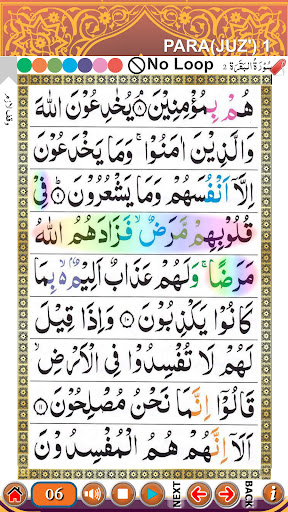 PARA(JUZ') 1
No Loop
سُوْرَةُ الْبَقَرَة ٢
وقف لازم
هُمْ بِمُؤْمِنِيْنَ ۘ‏﴿۸﴾ يُخٰدِعُوْنَ اللّٰهَ
وَالَّذِيْنَ اٰمَنُوْا ۚ وَمَا يَخْدَعُوْنَ
اِلَّاۤ اَنْفُسَهُمْ وَمَا يَشْعُرُوْنَ ؕ‏﴿۹﴾ فِىْ
قُلُوْبِهِمْ مَّرَضٌ ۙ فَزَادَهُمُ اللّٰهُ
مَرَضًا ۚ وَلَهُمْ عَذَابٌ اَلِيْمٌۢ ۙ بِمَا
كَانُوْا يَكْذِبُوْنَ ﴿۱۰﴾ وَاِذَا قِيْلَ
لَهُمْ لَا تُفْسِدُوْا فِى الْاَرْضِ ۙ
قَالُوْاۤ اِنَّمَا نَحْنُ مُصْلِحُوْنَ ﴿۱۱﴾
اَلَاۤ اِنَّهُمْ هُمُ الْمُفْسِدُوْنَ
06
NEXT
BACK
i